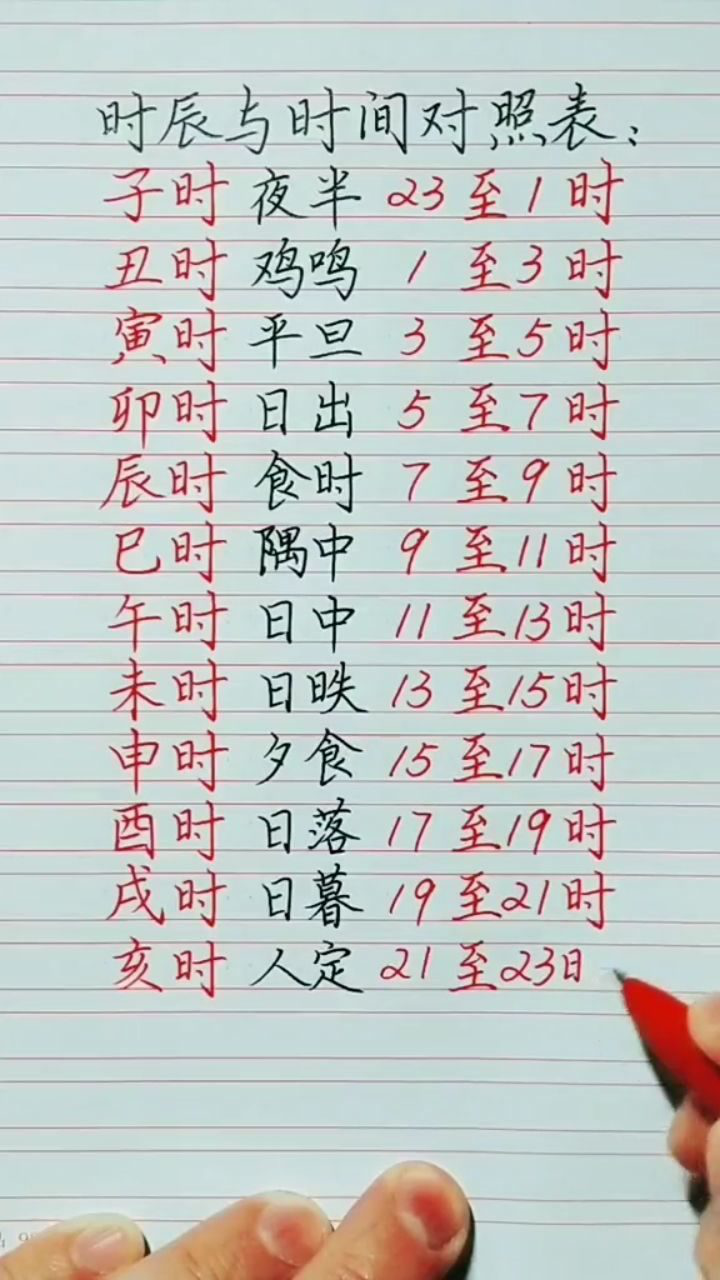 时辰与时间对照表：
子时 夜半 23 至 1 时
丑时 鸡鸣 1 至 3 时
寅时 平旦 3 至 5 时
卯时 日出 5 至 7 时
辰时 食时 7 至 9 时
巳时 隅中 9 至 11 时
午时 日中 11 至 13 时
未时 日昳 13 至 15 时
申时 夕食 15 至 17 时
酉时 日落 17 至 19 时
戌时 日暮 19 至 21 时
亥时 人定 21 至 23 日